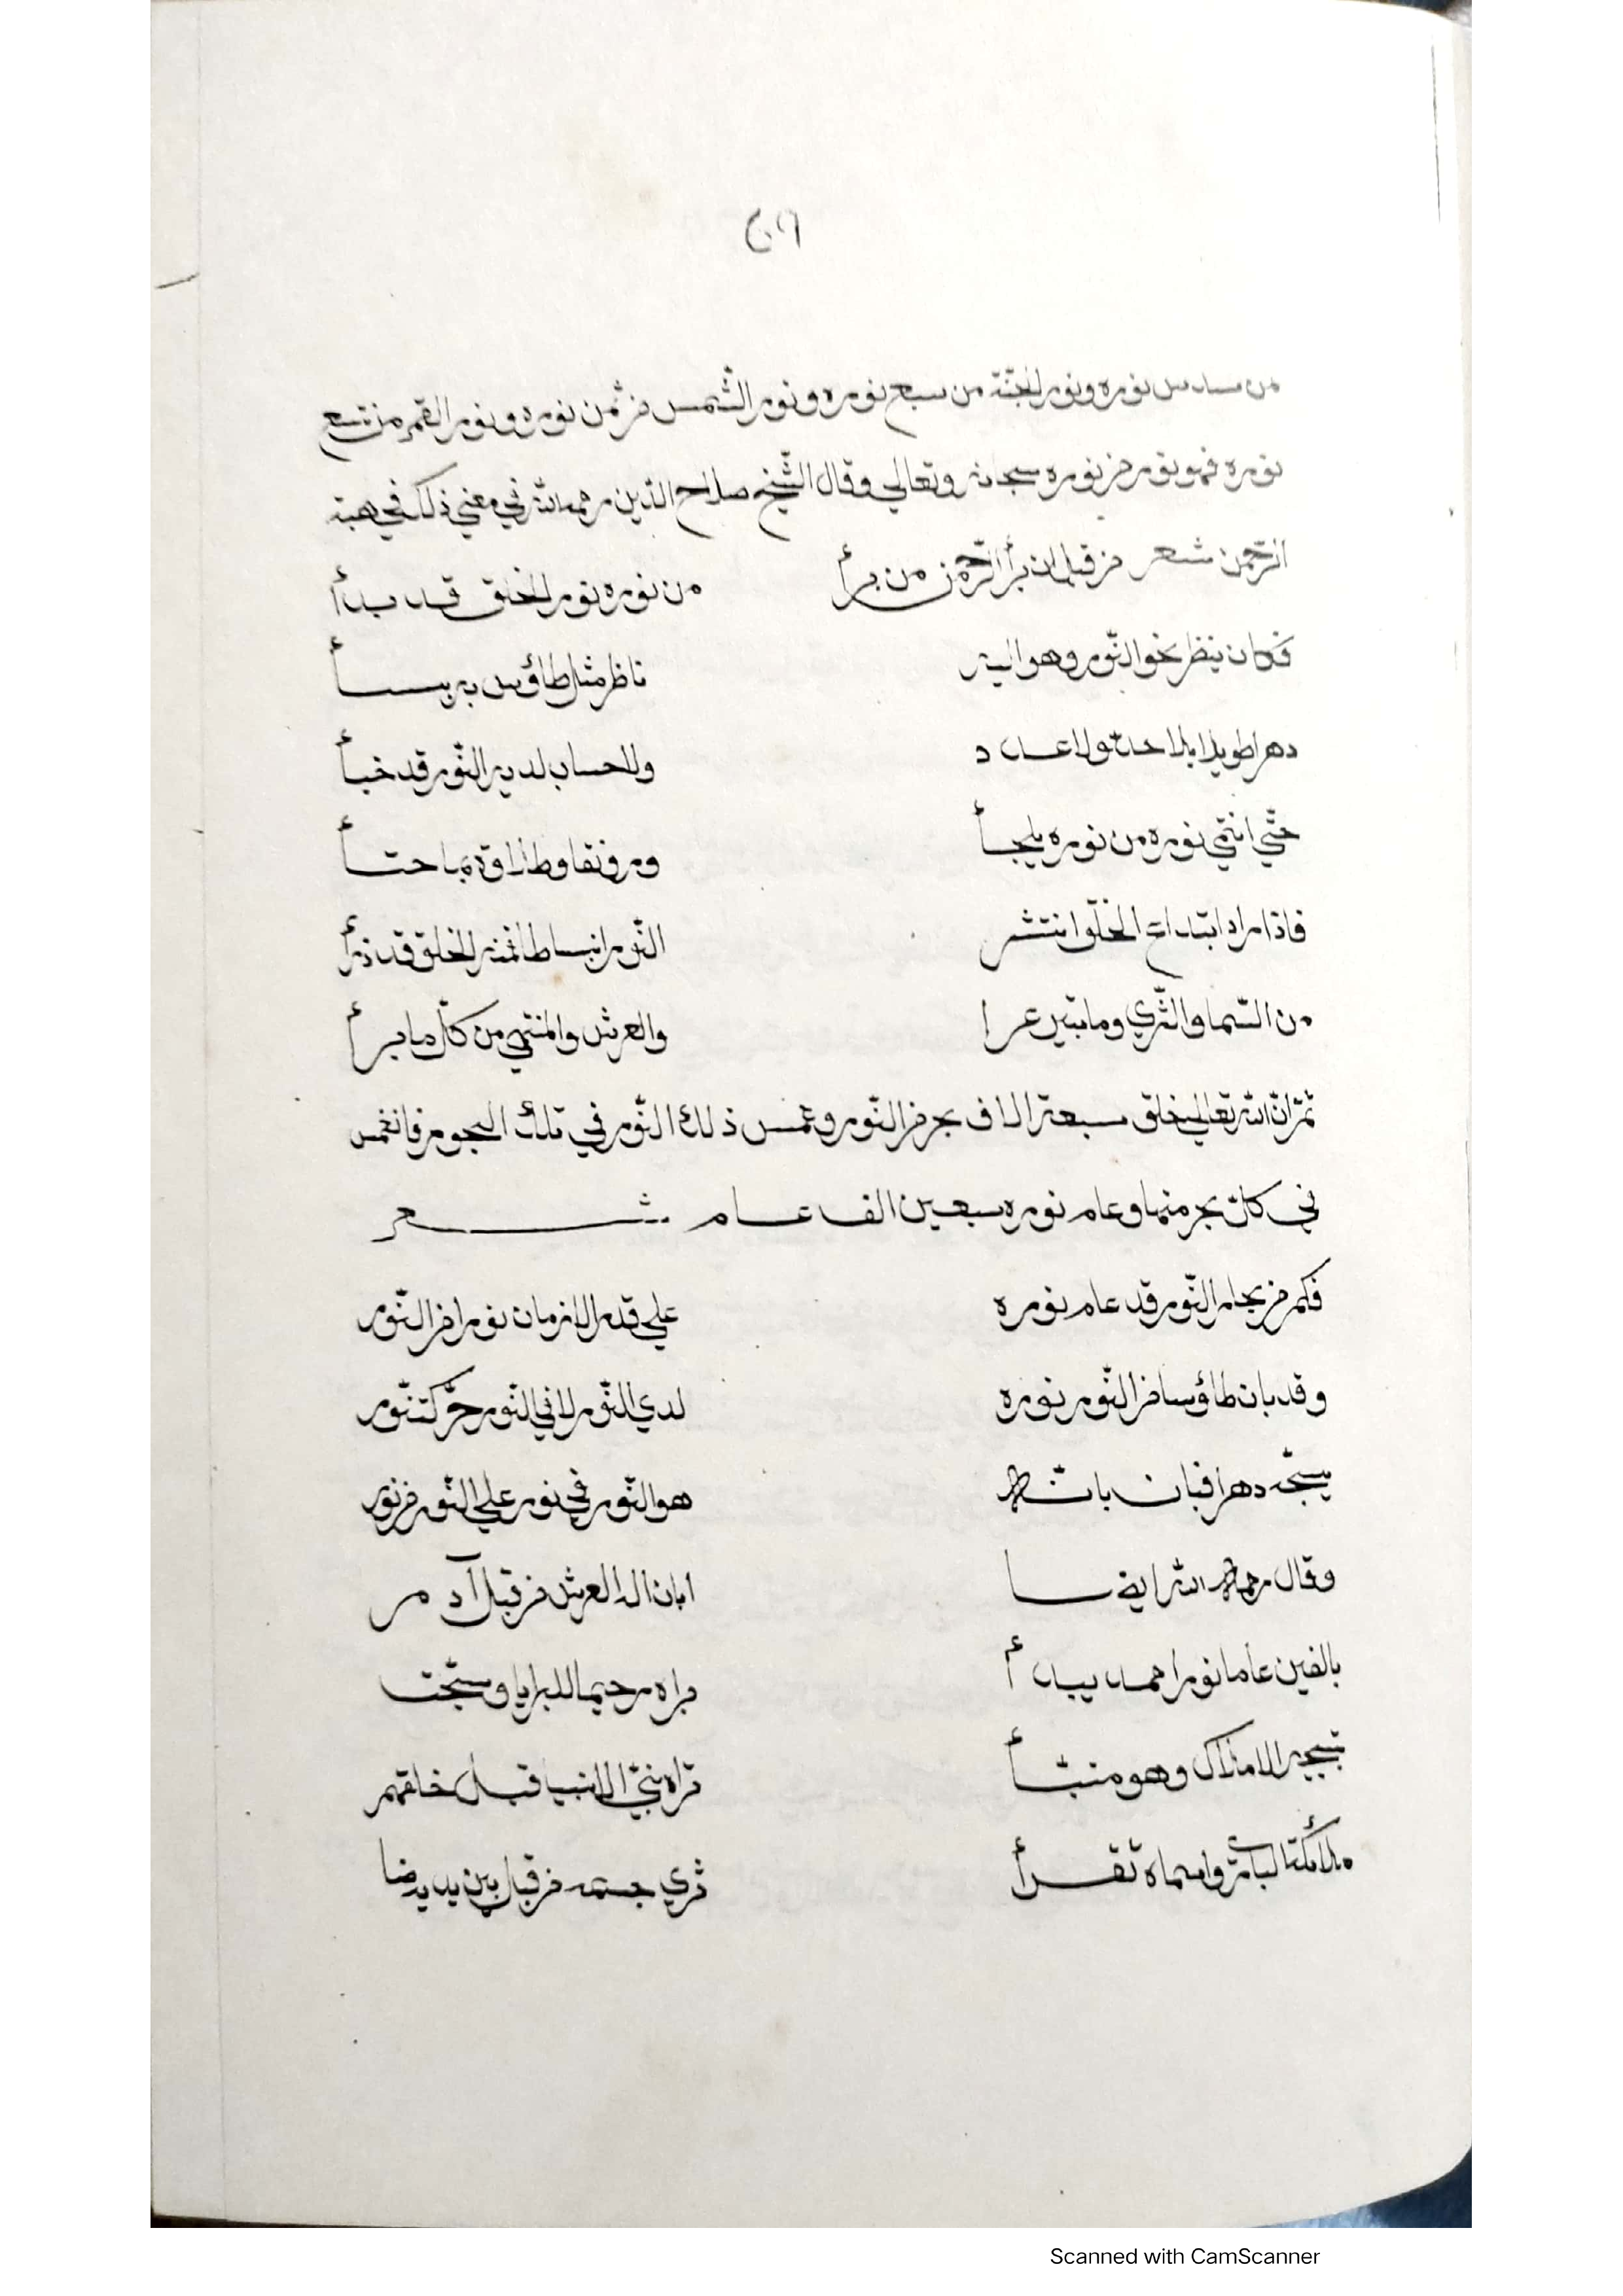 من سادس نوره ونور الجنّة من سبع نوره ونور الشّمس من ثمن نوره ونور القمر من تسع
نوره فهو نور من نوره سبحانه وتعالي وقال الشّيخ صلاح الدّين رحمه الله في معني ذلك في هبة
الرّحمن شعر من قبل ان برأ الرّحمن من برأ من نوره نور الخلق قد بدأ
فكان ينظر نحو النّور وهو اليه ناظر مثل طاؤس به
دهرا طويلا بلا حدّ ولا عدد وللحساب لديه النّور قد خبأ
حتّي انتهي نوره من نوره ورونقا وطلاقة بما
فاذا اراد ابتداع الخلق انتشر النّور انبساطا فمنه الخلق قد ذرأ
من السّما والثّري وما بين عرا والعرش والمنتهي من كلّ ما برأ
ثمّ انّ الله تعالي خلق سبعة الاف بحر من النّور وغمس ذلك النّور في تلك البحور فانغمس
في كلّ بحر منها وعام نوره سبعين الف عام شعر
فكم من بحار النّور قد عام نوره علي قدر الازمان نورا من النّور
وقد بان طاؤسا من النّور نوره لدي النّور لا في النّور حرّكة نور
يسبّحه دهرا فبان بانّه هو النّور في نور علي النّور من نور
وقال رحمه الله ايضا ابان اله العرش من قبل آدم
بالفين عاما نور احمد يبدأ براه رحيما للبرايا وسبّحت
بتسبيحه الاملاك وهو منبّأ تراه نبيّ الانبيا قبل خلقهم
ملائكة الباري واسماه تقرأ ثري جسمه من قبل بين يديه
Scanned with CamScanner